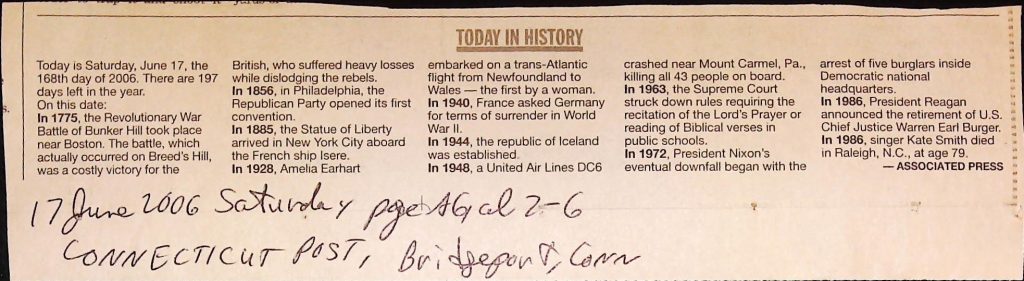 TODAY IN HISTORY
Today is Saturday, June 17, the
168th day of 2006. There are 197
days left in the year.
On this date:
In 1775, the Revolutionary War
Battle of Bunker Hill took place
near Boston. The battle, which
actually occurred on Breed's Hill,
was a costly victory for the
British, who suffered heavy losses
while dislodging the rebels.
In 1856, in Philadelphia, the
Republican Party opened its first
convention.
In 1885, the Statue of Liberty
arrived in New York City aboard
the French ship Isere.
In 1928, Amelia Earhart
embarked on a trans-Atlantic
flight from Newfoundland to
Wales — the first by a woman.
In 1940, France asked Germany
for terms of surrender in World
War II.
In 1944, the republic of Iceland
was established.
In 1948, a United Air Lines DC6
crashed near Mount Carmel, Pa.,
killing all 43 people on board.
In 1963, the Supreme Court
struck down rules requiring the
recitation of the Lord's Prayer or
reading of Biblical verses in
public schools.
In 1972, President Nixon's
eventual downfall began with the
arrest of five burglars inside
Democratic national
headquarters.
In 1986, President Reagan
announced the retirement of U.S.
Chief Justice Warren Earl Burger.
In 1986, singer Kate Smith died
in Raleigh, N.C., at age 79.
— ASSOCIATED PRESS
17 June 2006 Saturday page A6 col 2-6
CONNECTICUT POST, Bridgeport, Conn